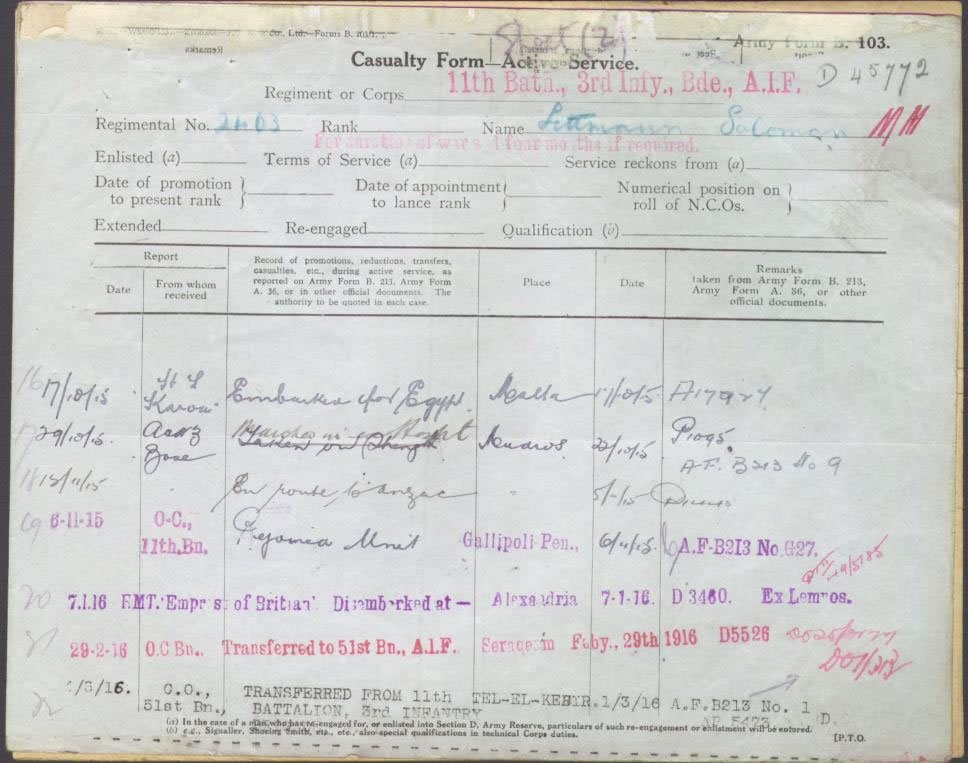 Co., Ltd.—Forms B. 103/1.
Remarks
Sheet (2)
Army Form B. 103.
Casualty Form—Active Service.
D 45772
Regiment or Corps 11th Batn., 3rd Infy., Bde., A.I.F.
Regimental No. 2403 Rank Name Littmann Soloman MM
For duration of war and four months if required.
Enlisted (a) Terms of Service (a) Service reckons from (a)
Date of promotion to present rank } Date of appointment to lance rank } Numerical position on roll of N.C.Os. }
Extended Re-engaged Qualification (b)
Report
Date
From whom received
Record of promotions, reductions, transfers, casualties, etc., during active service, as reported on Army Form B. 213, Army Form A. 36, or in other official documents. The authority to be quoted in each case.
Place
Date
Remarks taken from Army Form B. 213, Army Form A. 36, or other official documents.
16 17/10/15 Embarked for Egypt Malta 17/10/15
17 29/10/15 Base Taken on Strength Mudros 22/10/15
A.F. B213 No 9
18 En route to Anzac "
19 6-11-15 O.C., 11th.Bn. Rejoined Unit Gallipoli Pen., 6/11/15 A.F-B213 No.G27.
20 7.1.16 Disembarked at — Alexandria 7-1-16. D 3460. Ex Lemnos.
21 29-2-16 O.C Bn., Transferred to 51st Bn., A.I.F. Feby., 29th 1916 D5526
22 1/3/16. C.O., 51st Bn., TRANSFERRED FROM 11th BATTALION, 3rd INFANTRY TEL-EL-KEBYR. 1/3/16 A.F.B213 No. 1
AP 5473 D.
(a) In the case of a man who has re-engaged for, or enlisted into Section D, Army Reserve, particulars of such re-engagement or enlistment will be entered.
(b) e.g., Signaller, Shoeing Smith, etc., etc., also special qualifications in technical Corps duties.
[P.T.O.